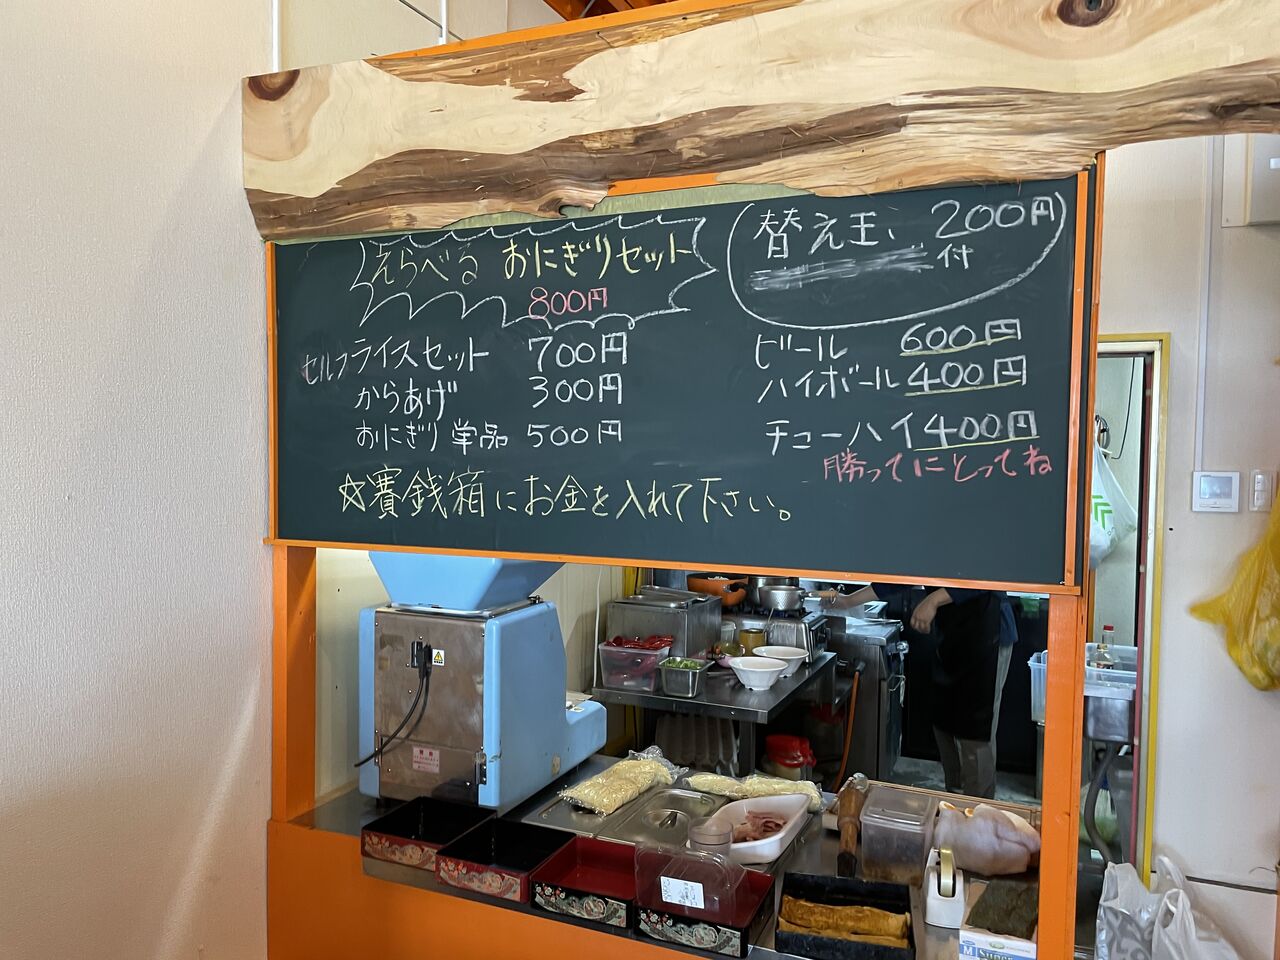 えらべる おにぎりセット
800円
セルフライスセット 700円
からあげ 300円
おにぎり単品 500円
☆賽銭箱にお金を入れて下さい。
替え玉、200円
付
ビール 600円
ハイボール 400円
チューハイ 400円
勝ってにとってね